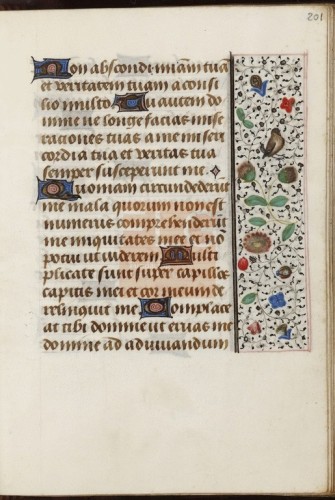 201
Non abscondi miam tuā
et veritatem tuam a consi
lio multo Tu autem do
mine ne longe facias mise
rationes tuas a me miseri
cordia tua et veritas tua
semper susceperunt me
Quoniam circundederūt
me mala quorum non est
numerus comprehenderūt
me iniquitates mee et nō
potui ut viderem Multi
plicate sunt super capillos
capitis mei et cor meum de
reliinquit me Complace
at tibi domine ut eruas me
domine ad adiuvandum